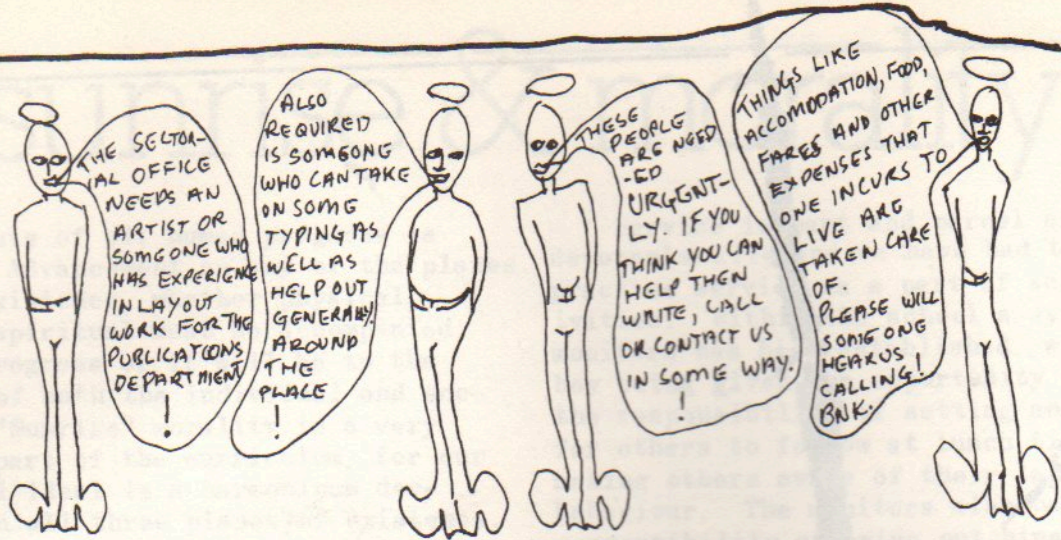 THE SECTOR-
IAL OFFICE
NEEDS AN
ARTIST OR
SOMEONE WHO
HAS EXPERIENCE
IN LAYOUT
WORK FOR THE
PUBLICATIONS
DEPARTMENT
!
ALSO
REQUIRED
IS SOMEONE
WHO CAN TAKE
ON SOME
TYPING AS
WELL AS
HELP OUT
GENERALLY
AROUND
THE
PLACE
!
THESE
PEOPLE
ARE NEED
-ED
URGENT-
LY. IF YOU
THINK YOU CAN
HELP THEN
WRITE, CALL
OR CONTACT US
IN SOME WAY.
!
THINGS LIKE
ACCOMODATION, FOOD,
FARES AND OTHER
EXPENSES THAT
ONE INCURS TO
LIVE ARE
TAKEN CARE
OF.
PLEASE WILL
SOME ONE
HEAR US
CALLING!
BNK.